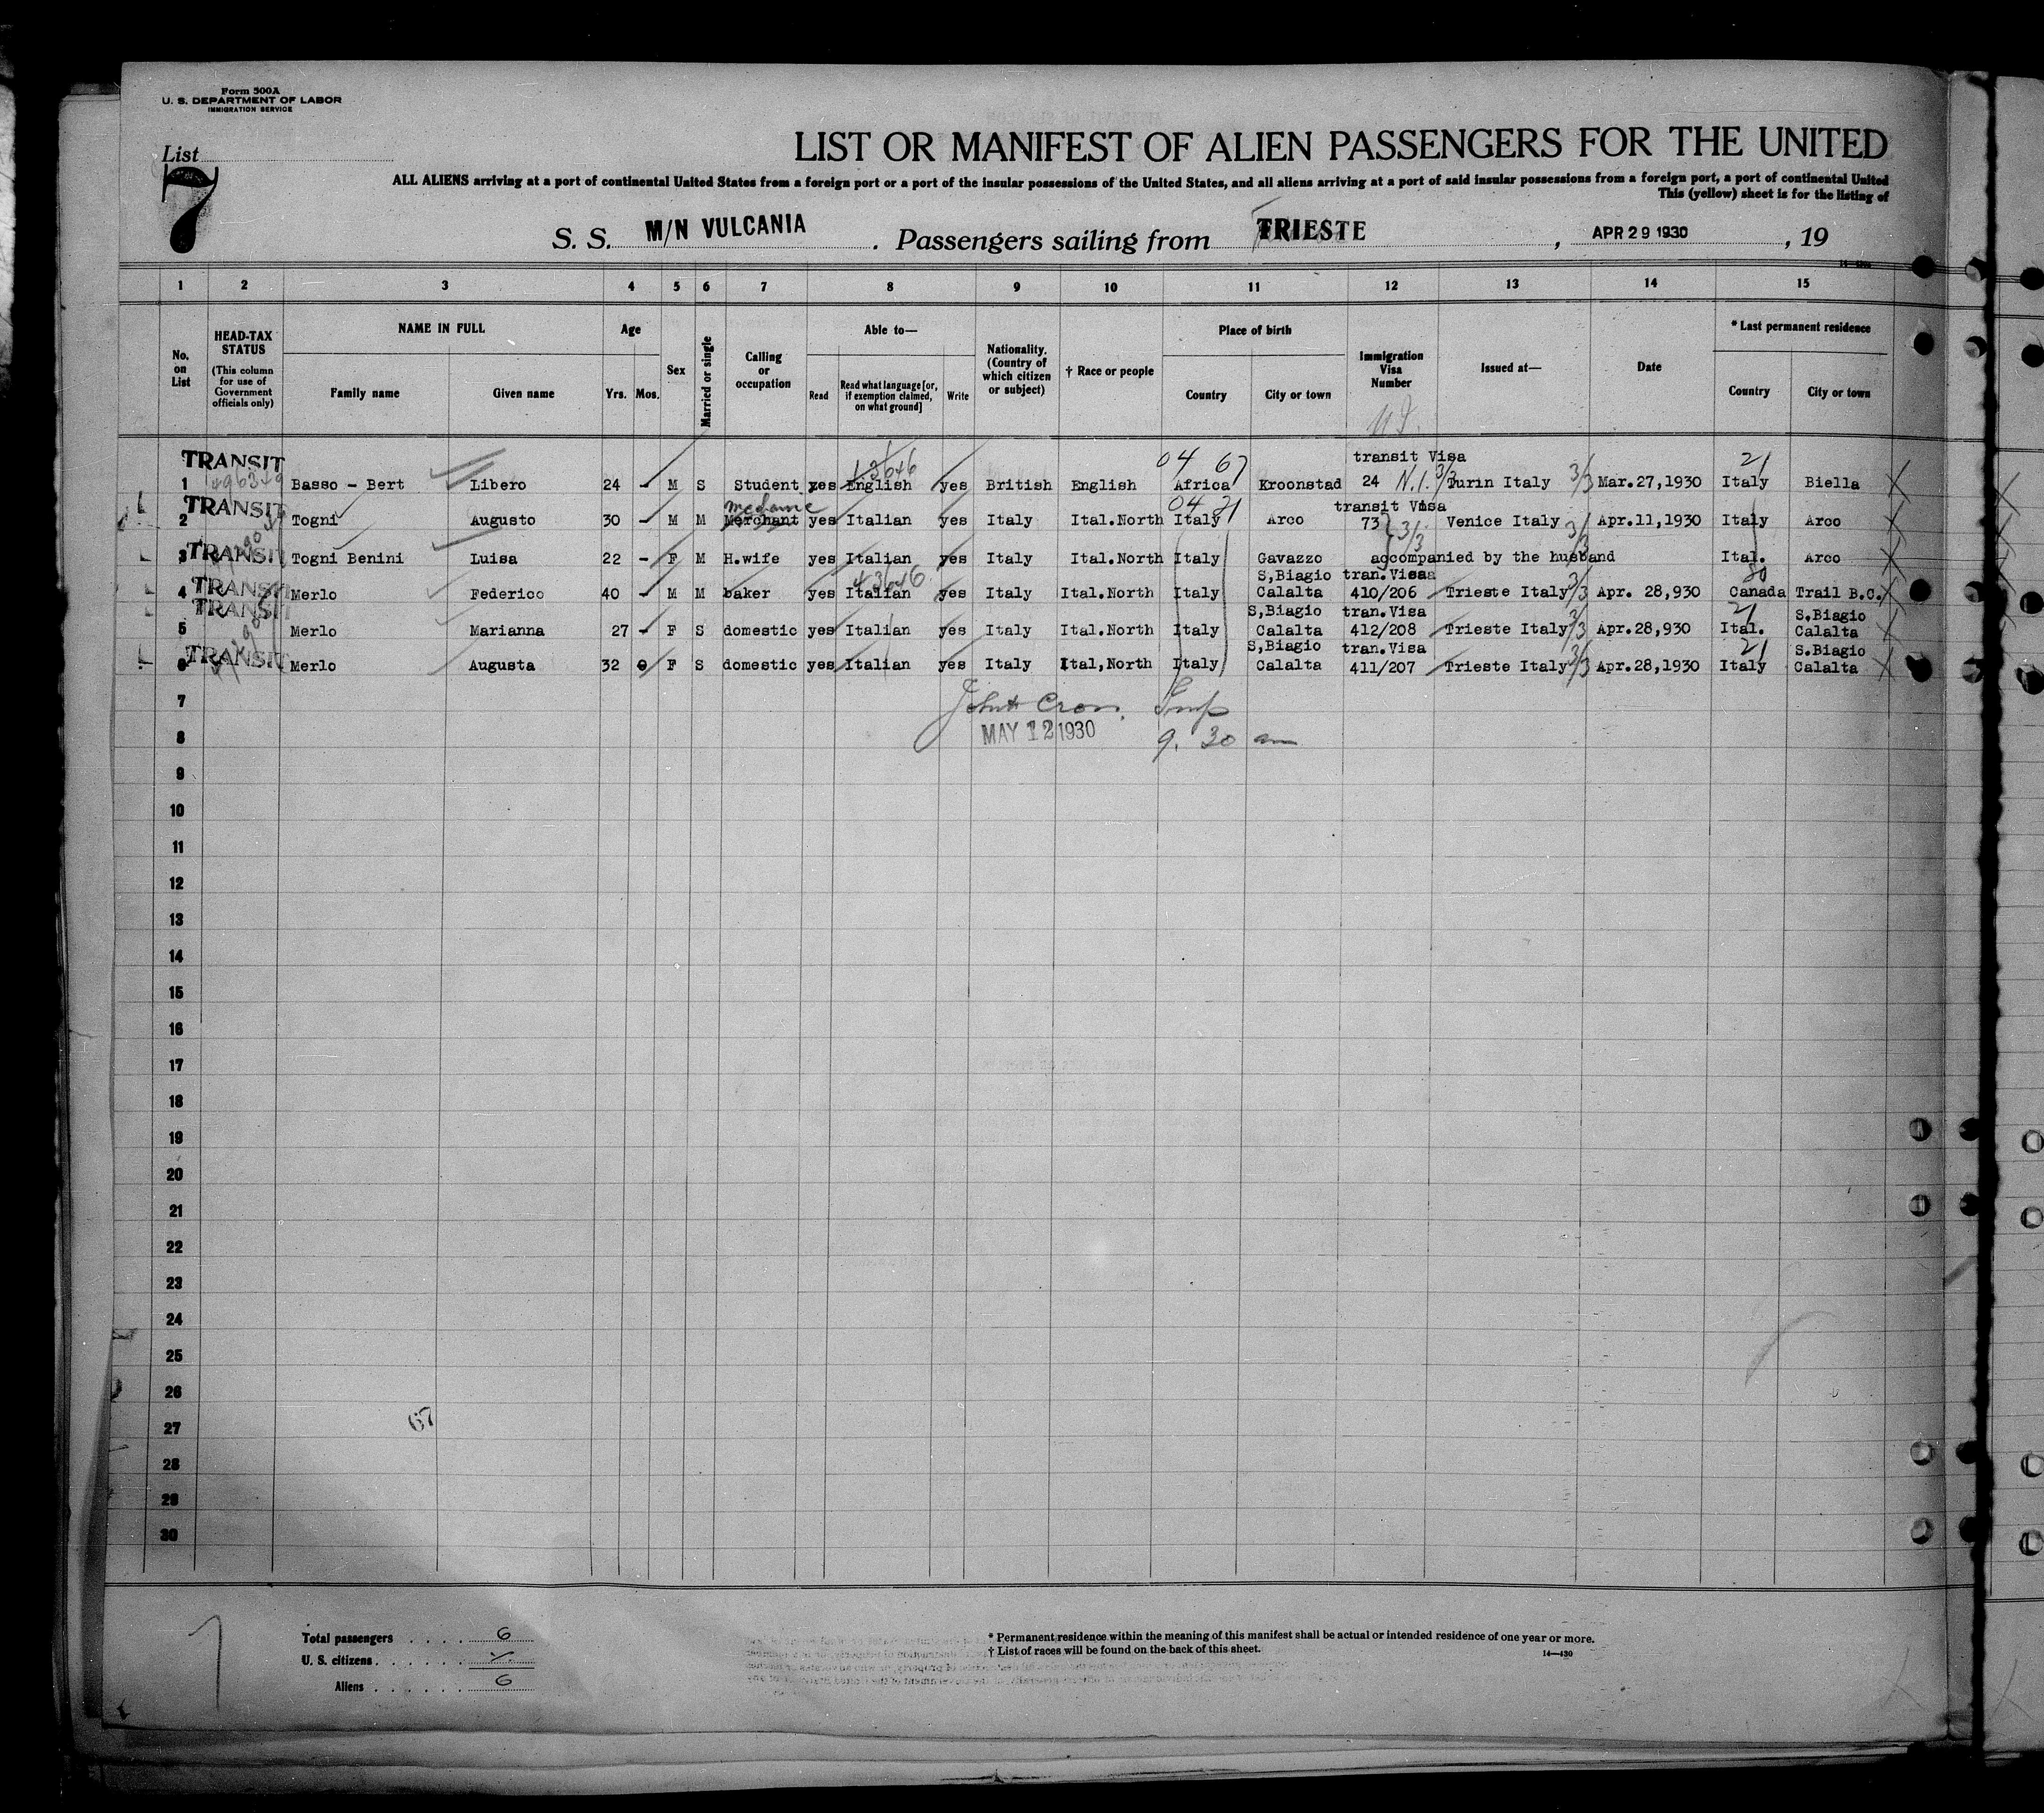 Form 500A
U. S. DEPARTMENT OF LABOR
IMMIGRATION SERVICE
List
7
LIST OR MANIFEST OF ALIEN PASSENGERS FOR THE UNITED
ALL ALIENS arriving at a port of continental United States from a foreign port or a port of the insular possessions of the United States, and all aliens arriving at a port of said insular possessions from a foreign port, a port of continental United
This (yellow) sheet is for the listing of
S. S. M/N VULCANIA . Passengers sailing from TRIESTE , APR 29 1930 , 19
1 2 3 4 5 6 7 8 9 10 11 12 13 14 15
No. on List
HEAD-TAX STATUS (This column for use of Government officials only)
NAME IN FULL
Family name Given name
Age
Yrs. Mos.
Sex
Married or single
Calling or occupation
Able to—
Read Read what language [or, if exemption claimed, on what ground] Write
Nationality. (Country of which citizen or subject)
† Race or people
Place of birth
Country City or town
Immigration Visa Number
Issued at—
Date
* Last permanent residence
Country City or town
TRANSIT 13646 04 67 transit Visa 21
1 Basso - Bert Libero 24 - M S Student yes English yes British English Africa Kroonstad 24 N.I. 3/3 Turin Italy 3/3 Mar.27,1930 Italy Biella
TRANSIT mechanic 04 21 transit Visa
2 Togni Augusto 30 - M M Merchant yes Italian yes Italy Ital.North Italy Arco 73 3/3 Venice Italy 3/3 Apr.11,1930 Italy Arco
3 TRANSIT Togni Benini Luisa 22 - F M H.wife yes Italian yes Italy Ital.North Italy Gavazzo accompanied by the husband Ital. Arco
TRANSIT 43646 S,Biagio tran.Visa 80
4 Merlo Federico 40 - M M baker yes Italian yes Italy Ital.North Italy Calalta 410/206 Trieste Italy 3/3 Apr. 28,930 Canada Trail B.C.
TRANSIT S,Biagio tran.Visa 21 S.Biagio
5 Merlo Marianna 27 - F S domestic yes Italian yes Italy Ital.North Italy Calalta 412/208 Trieste Italy 3/3 Apr.28,930 Ital. Calalta
TRANSIT S,Biagio tran.Visa 21 S.Biagio
6 Merlo Augusta 32 F S domestic yes Italian yes Italy Ital,North Italy Calalta 411/207 Trieste Italy 3/3 Apr.28,1930 Italy Calalta
7
MAY 12 1930
8 9. 30 am
9
10
11
12
13
14
15
16
17
18
19
20
21
22
23
24
25
26
27
67
28
29
30
Total passengers . . . . 6
U. S. citizens . . . . . .
Aliens . . . . . 6
* Permanent residence within the meaning of this manifest shall be actual or intended residence of one year or more.
† List of races will be found on the back of this sheet.
14—430